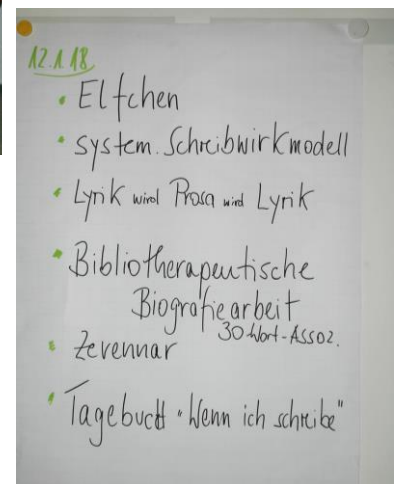 12.1.18
• Elfchen
• System. Schreibwirkmodell
• Lyrik wird Prosa wird Lyrik
• Bibliotherapeutische
Biografiearbeit
30 Wort-Assoz.
• Zevennar
• Tagebuch "Wenn ich schreibe"